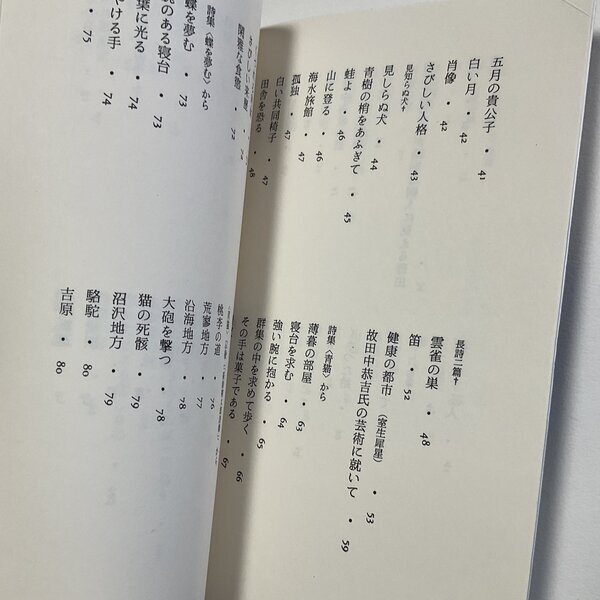 五月の貴公子・41
白い月・42
肖像・42
さびしい人格・43
見知らぬ犬†
見しらぬ犬・44
青樹の梢をあふぎて・45
蛙よ・46
山に登る・46
海水旅館・47
孤独・47
白い共同椅子・47
田舎を恐る・48
長詩二篇†
雲雀の巣・48
笛・52
健康の都市（室生犀星）・53
故田中恭吉氏の芸術に就いて・59
詩集〈青猫〉から
薄暮の部屋・63
寝台を求む・64
強い腕に抱かる・65
群集の中を求めて歩く・66
その手は菓子である・67
閑雅な食慾・72
詩集〈蝶を夢む〉から
蝶を夢む・73
のある寝台・73
葉に光る・74
やける手・74
・75
桃李の道・76
荒寥地方・77
沿海地方・78
大砲を撃つ・78
猫の死骸・79
沼沢地方・79
駱駝・80
吉原・80